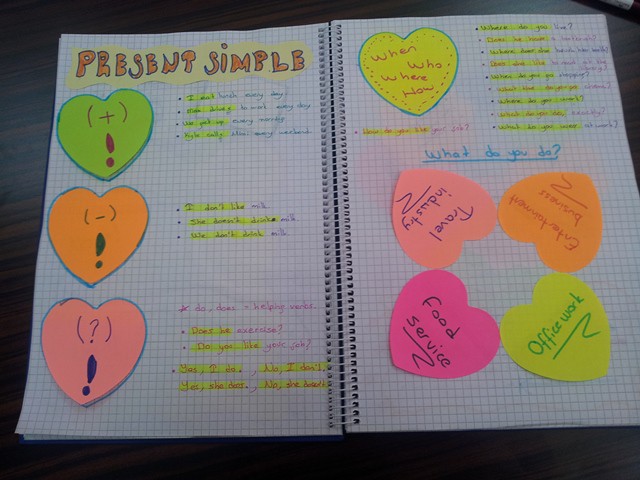 PRESENT SIMPLE
(+)
!
• I eat lunch every day.
• to work every day
• We get up every
• Kyle calls every weekend.
(-)
!
• I don't like milk.
• She doesn't drink milk.
• We don't drink milk.
(?)
!
* do, does = helping verbs.
• Does he exercise?
• Do you like your job?
• Yes, I do. , No, I don't.
Yes, she does. , No, she doesn't.
When
Who
Where
How
• Where do you live?
• Does he have a
• Where does she
• Does she like to
• What do you
• What time do you get
• Where do you work?
• What do you do exactly?
• What do you wear at work?
• How do you like your job?
What do you do?
Travel industry
Entertainment business
Food service
Office work